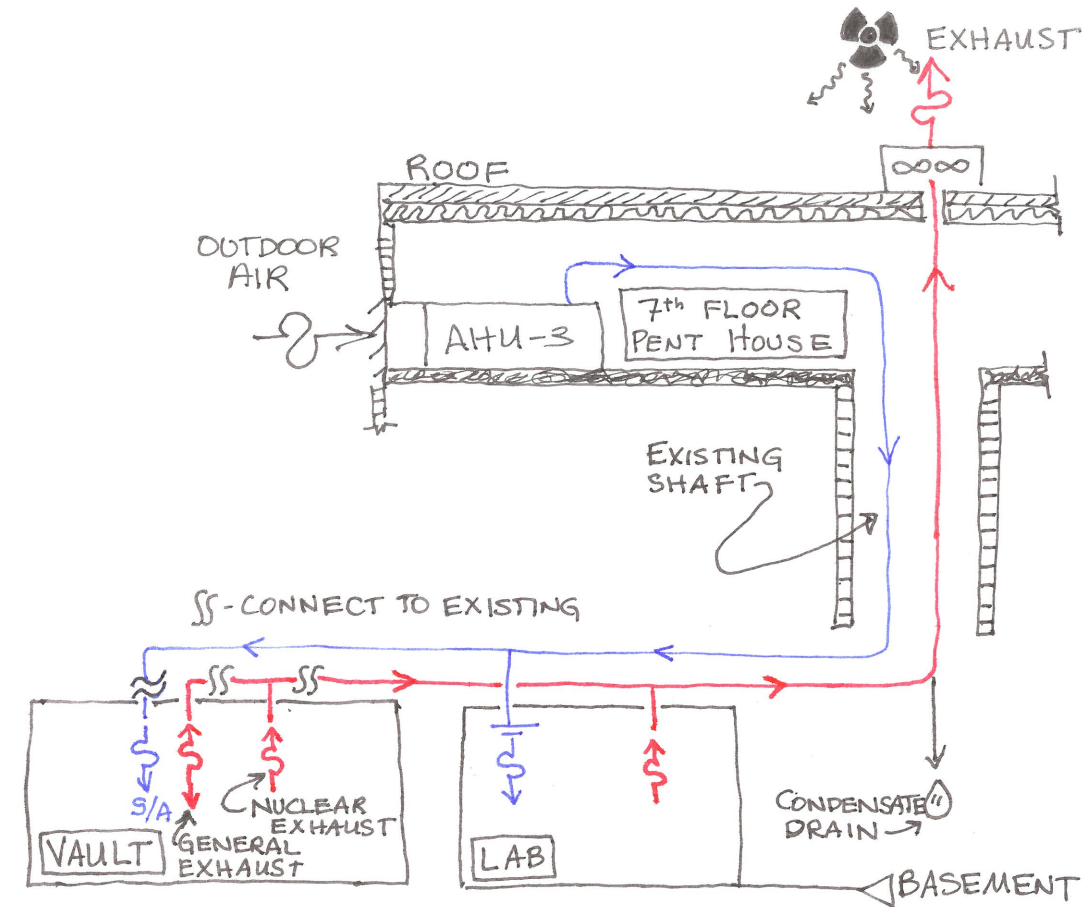 EXHAUST
ROOF
OUTDOOR
AIR
AHU-3
7th FLOOR
PENT HOUSE
EXISTING
SHAFT
SS-CONNECT TO EXISTING
S/A
NUCLEAR
EXHAUST
GENERAL
EXHAUST
VAULT
LAB
CONDENSATE
DRAIN
BASEMENT